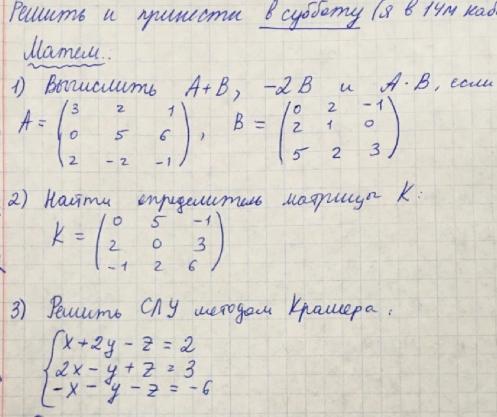 Решить и принести в субботу (я в 14м каб
Матем..
1) Вычислить A+B, -2B и A·B, если
A = (3 2 1
0 5 6
2 -2 -1), B = (0 2 -1
2 1 0
5 2 3)
2) Найти определитель матрицы K:
K = (0 5 -1
2 0 3
-1 2 6)
3) Решить СЛУ методом Крамера:
{x+2y-z=2
2x-y+z=3
-x-y-z=-6